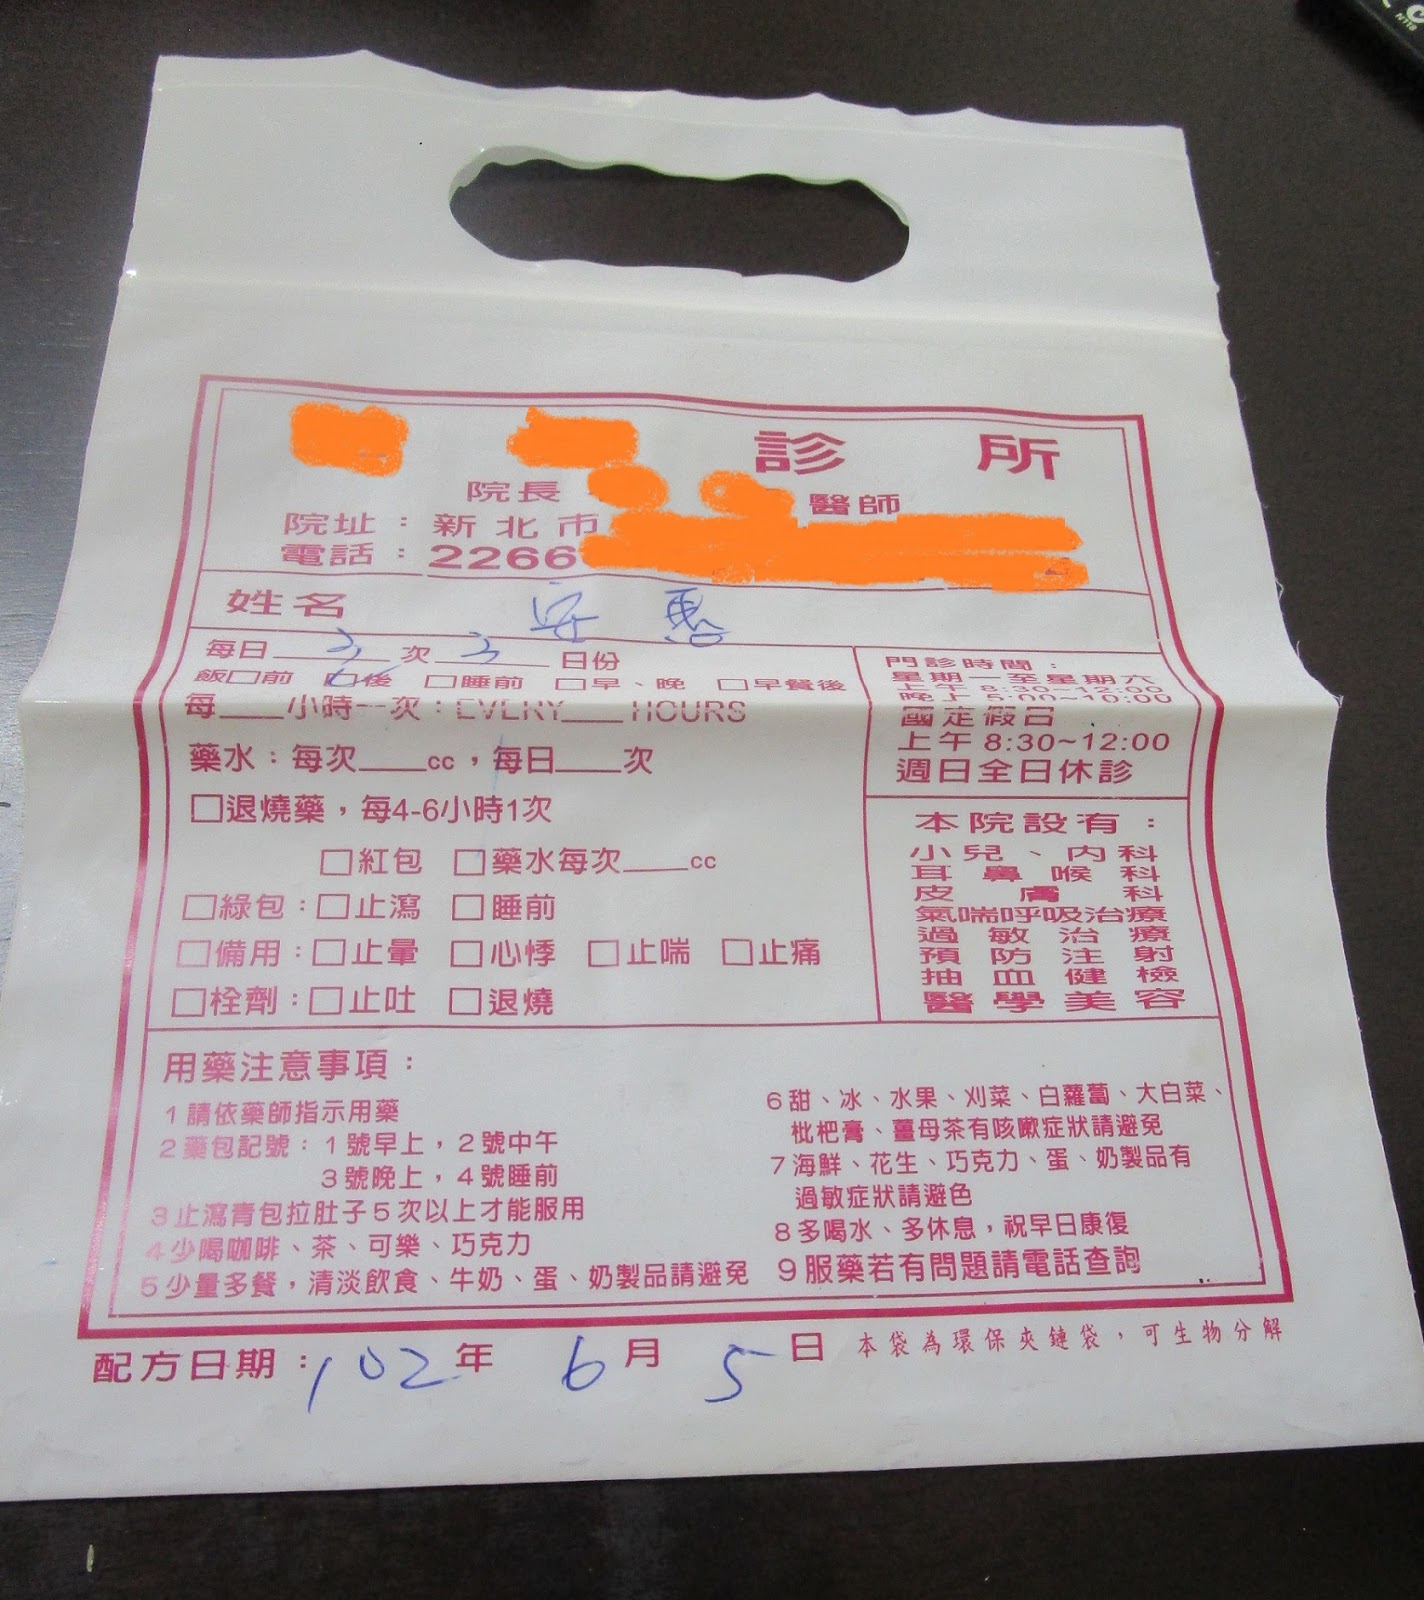 診所
院長 醫師
院址：新北市
電話：2266
姓名 安 惠
每日 3 次 3 日份
飯□前 □後 □睡前 □早、晚 □早餐後
每____小時一次：EVERY____HOURS
藥水：每次____cc，每日____次
□退燒藥，每4-6小時1次
□紅包 □藥水每次____cc
□綠包：□止瀉 □睡前
□備用：□止暈 □心悸 □止喘 □止痛
□栓劑：□止吐 □退燒
門診時間：
星期一至星期六
上午 8:30~12:00
晚上 5:00~10:00
國定假日
上午 8:30~12:00
週日全日休診
本院設有：
小兒、內科
耳鼻喉科
皮膚科
氣喘呼吸治療
過敏治療
預防注射
抽血健檢
醫學美容
用藥注意事項：
1 請依藥師指示用藥
2 藥包記號：1號早上，2號中午
3號晚上，4號睡前
3 止瀉青包拉肚子5次以上才能服用
4 少喝咖啡、茶、可樂、巧克力
5 少量多餐，清淡飲食、牛奶、蛋、奶製品請避免
6 甜、冰、水果、刈菜、白蘿蔔、大白菜、
枇杷膏、薑母茶有咳嗽症狀請避免
7 海鮮、花生、巧克力、蛋、奶製品有
過敏症狀請避色
8 多喝水、多休息，祝早日康復
9 服藥若有問題請電話查詢
配方日期：102年 6月 5日
本袋為環保夾鏈袋，可生物分解